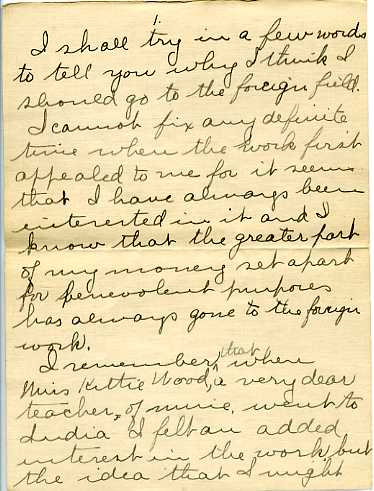 I shall try in a few words
to tell you why I think I
should go to the foreign field.
I cannot fix any definite
time when the work first
appealed to me for it seems
that I have always been
interested in it and I
know that the greater part
of my money set apart
for benevolent purposes
has always gone to the foreign
work.
I remember, that when
Miss Kittie Wood, a very dear
teacher, of mine, went to
India I felt an added
interest in the work but
the idea that I might